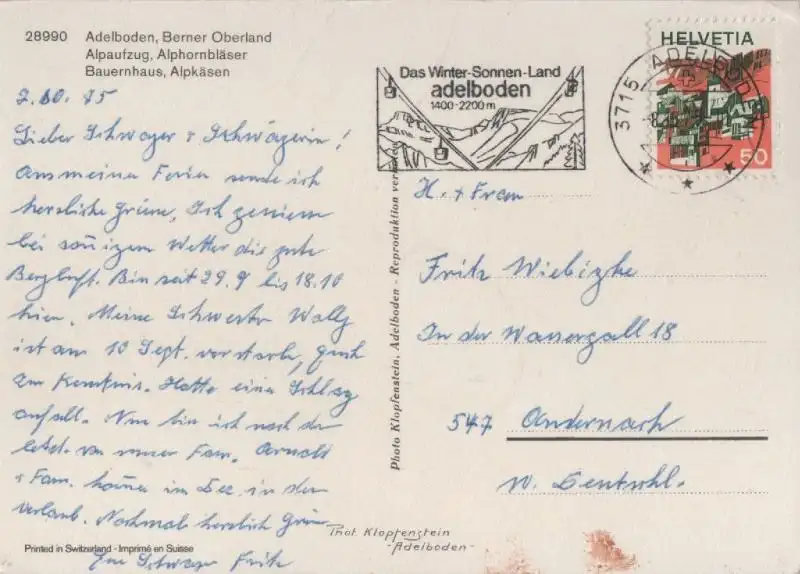 28990 Adelboden, Berner Oberland
Alpaufzug, Alphornbläser
Bauernhaus, Alpkäsen
2.10.75
Lieber Schwager & Schwägerin!
Aus meine Ferien sende ich
herzliche Grüsse, Ich geniesse
bei sonigem Wetter die gute
Bergluft. Bin seit 29.9 bis 18.10
hier. Meine Schwester Wally
ist am 10 Sept. verstorben,
zur Kenntnis. Hatte eine Schlag
anfall. Nun bin ich noch der
letzte von unser Fam. Arnold
& Fam. im Dez. in den
Verlaub. Nochmals herzlich Grüsse
Euer Schwager Fritz
Printed in Switzerland - Imprimé en Suisse
Photo Klopfenstein, Adelboden - Reproduktion
Phot. Klopfenstein
-Adelboden-
Das Winter-Sonnen-Land
adelboden
1400-2200 m
3715 ADELBODEN
HELVETIA
50
H. + Frau
Fritz Wiebizke
In der Wassergall 18
547 Andernach
W. Deutschl.